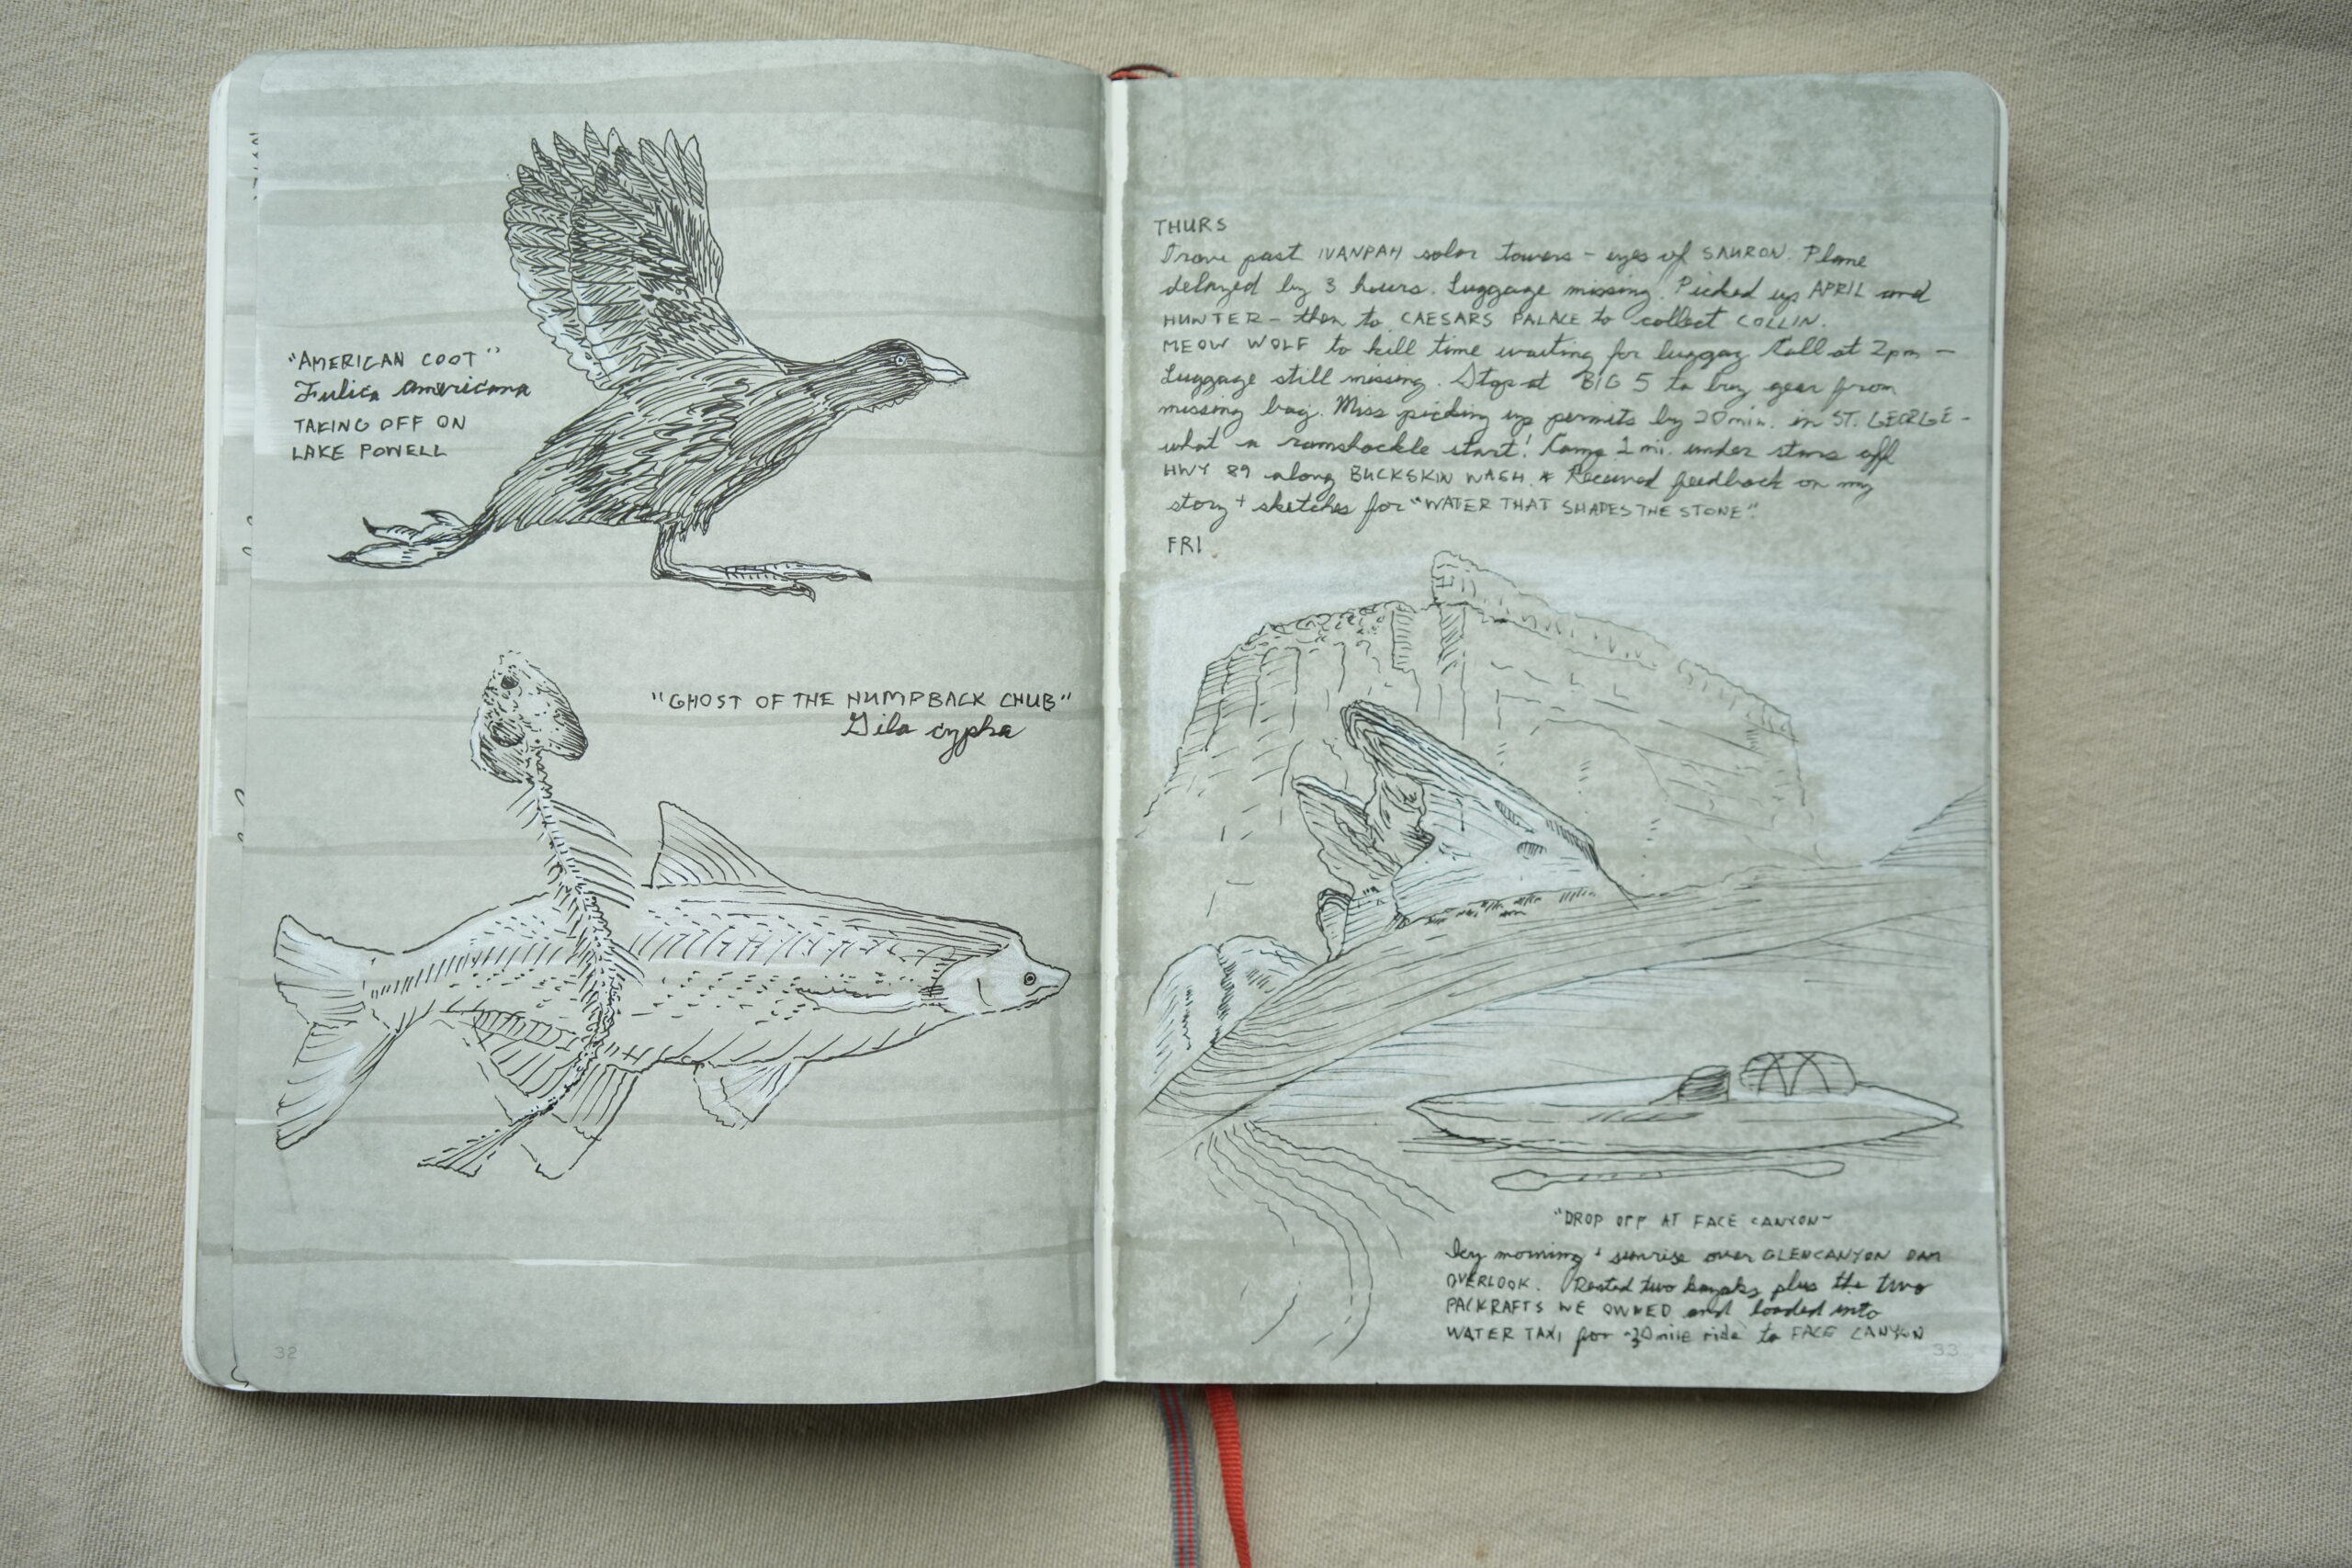 "AMERICAN COOT"
Fulica americana
TAKING OFF ON
LAKE POWELL
"GHOST OF THE HUMPBACK CHUB"
Gila cypha
32
THURS
Drove past IVANPAH solar towers - eyes of SAURON. Plane
delayed by 3 hours. Luggage missing. Picked up APRIL and
HUNTER - then to CAESARS PALACE to collect COLLIN.
MEOW WOLF to kill time waiting for luggag. Call at 2pm -
Luggage still missing. Stop at BIG 5 to buy gear from
missing bag. Miss picking up permits by 20 min. in ST. GEORGE -
what a ramshackle start! Camp 2 mi. under stars off
HWY 89 along BUCKSKIN WASH. * Received feedback on my
story + sketches for "WATER THAT SHAPES THE STONE".
FRI
"DROP OFF AT FACE CANYON"
Icy morning + sunrise over GLENCANYON DAM
OVERLOOK. Rented two kayaks plus the two
PACKRAFTS WE OWNED and loaded into
WATER TAXI for ~30 mile ride to FACE CANYON
33